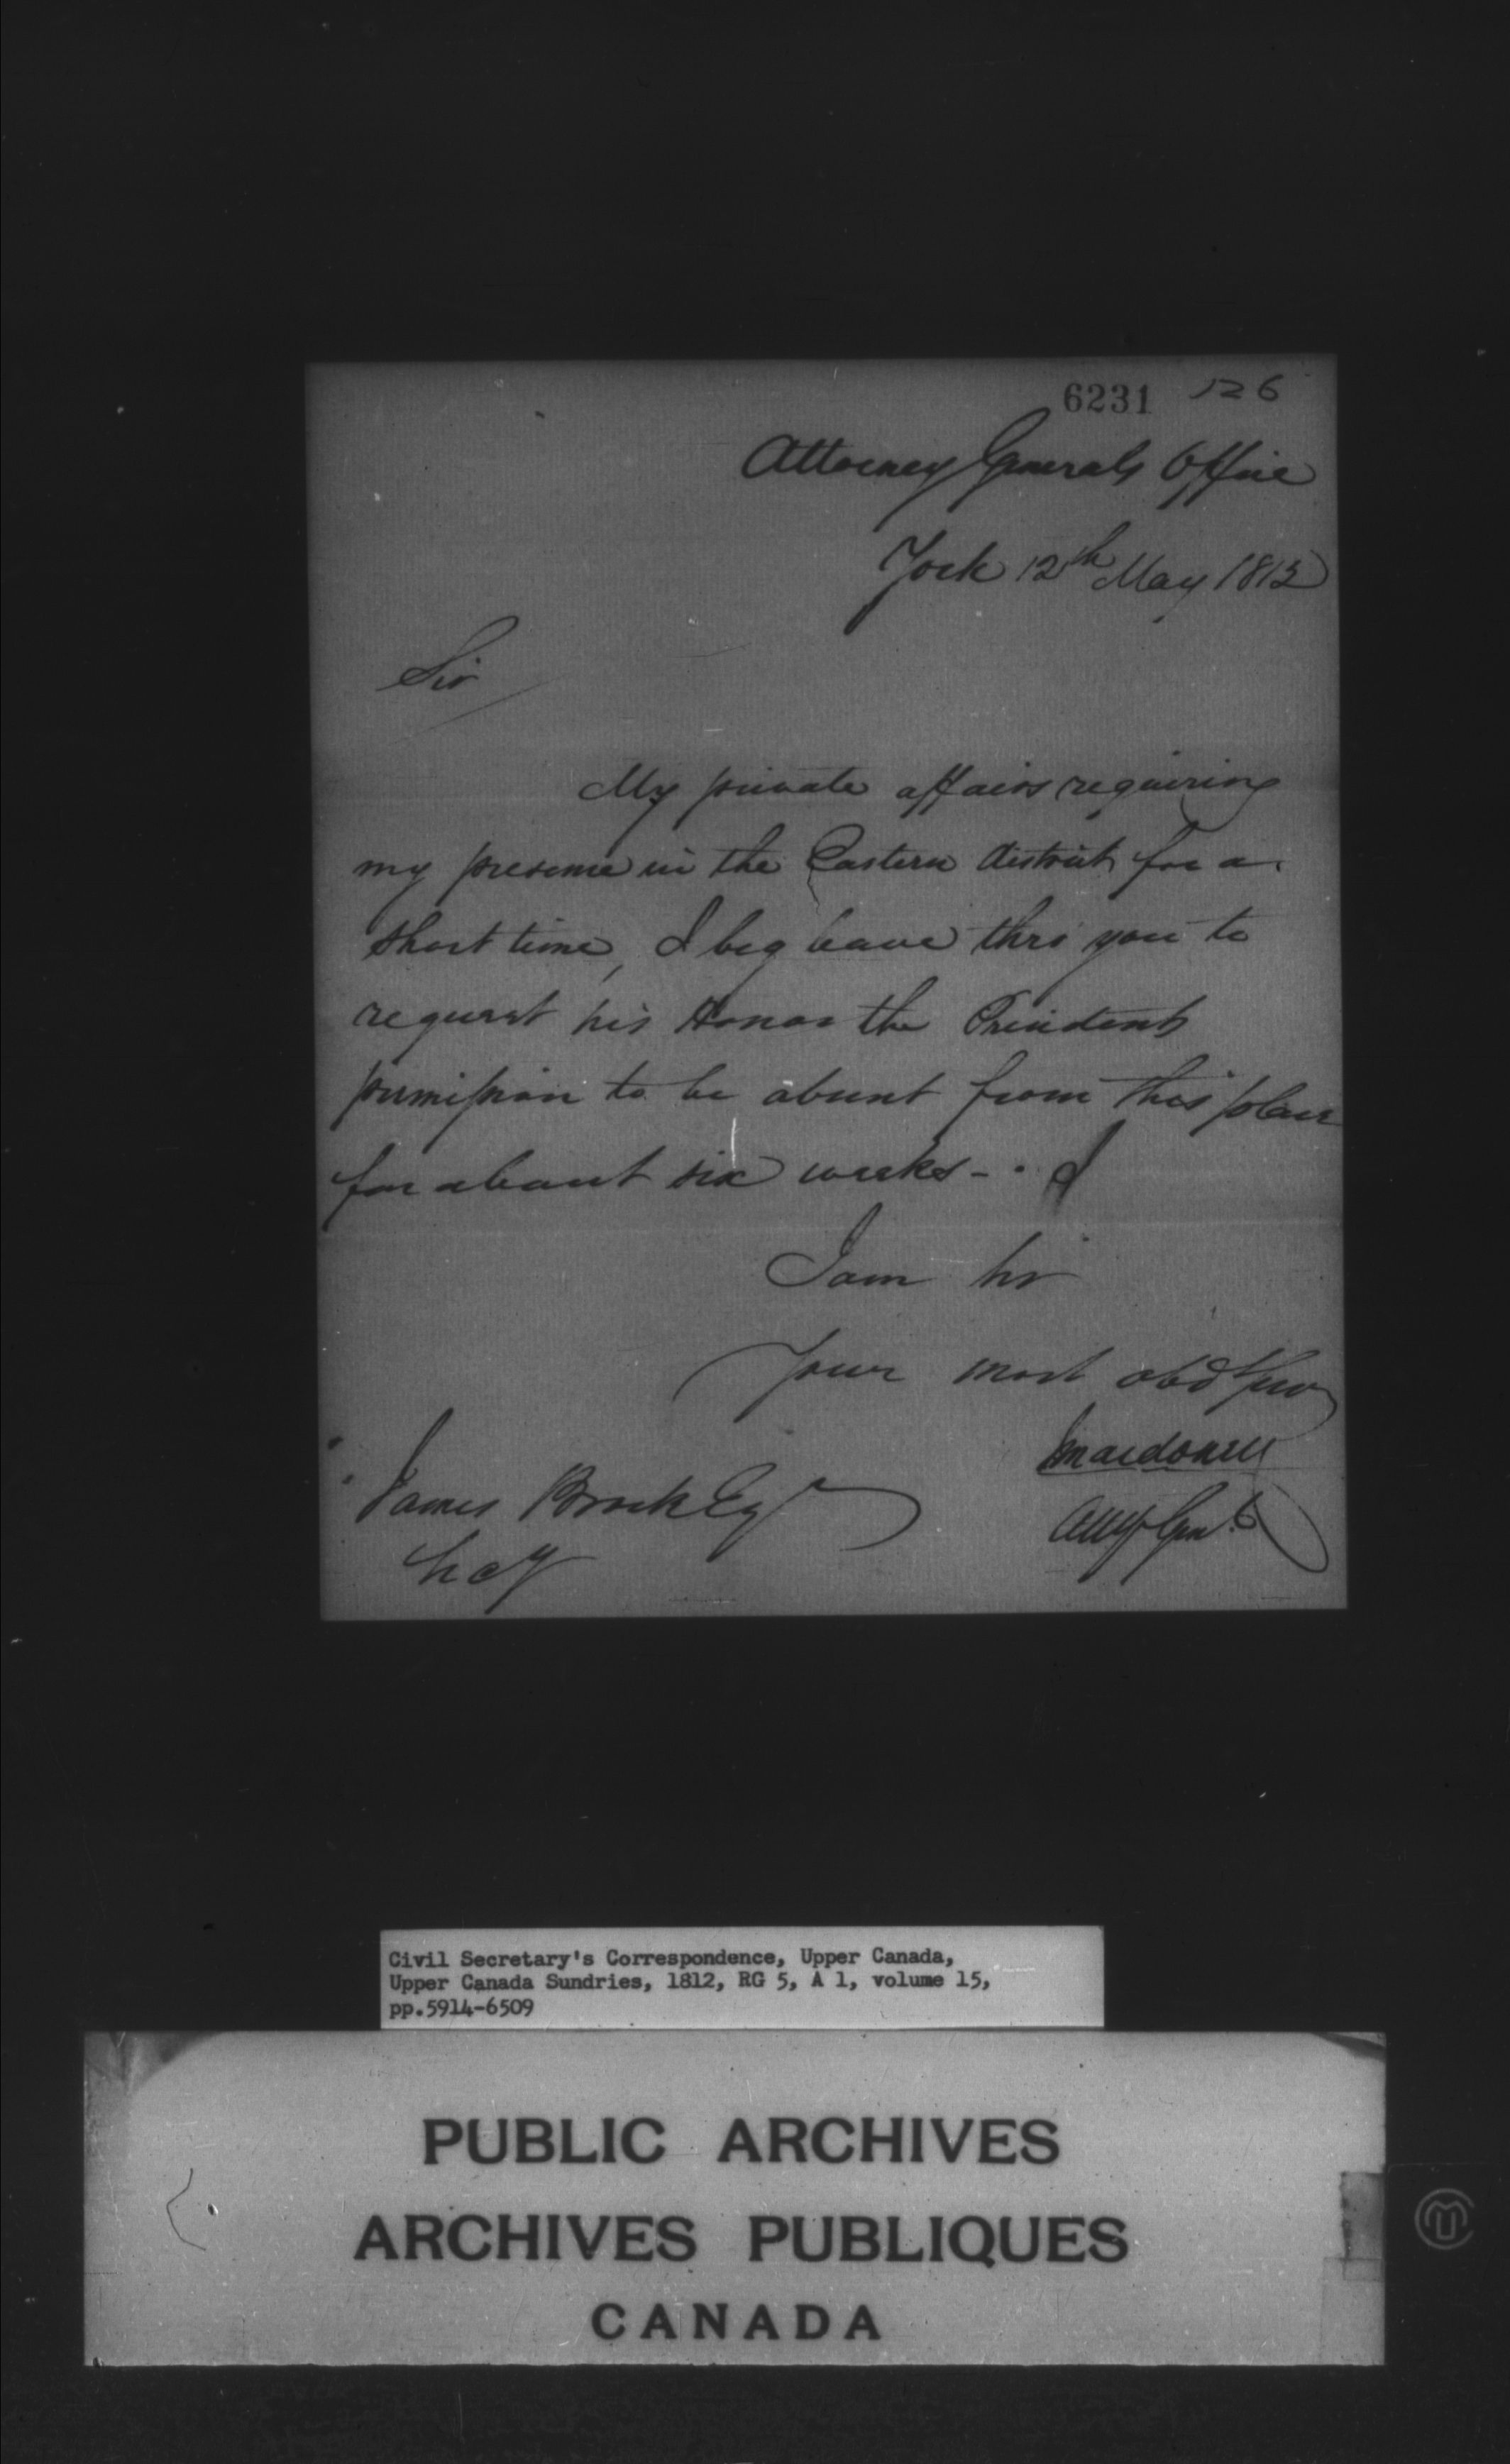 6231 126
Attorney Generals Office
York 12th May 1812
Sir
My private affairs requiring
my presence in the Eastern district for a
short time, I beg leave thro' you to
request his Honor the Presidents
permission to be absent from this place
for about six weeks - . I
I am Sir
Your most obdt
J Macdonell
Atty Genl
James Brock Esqr
Secy
Civil Secretary's Correspondence, Upper Canada,
Upper Canada Sundries, 1812, RG 5, A 1, volume 15,
pp.5914-6509
PUBLIC ARCHIVES
ARCHIVES PUBLIQUES
CANADA